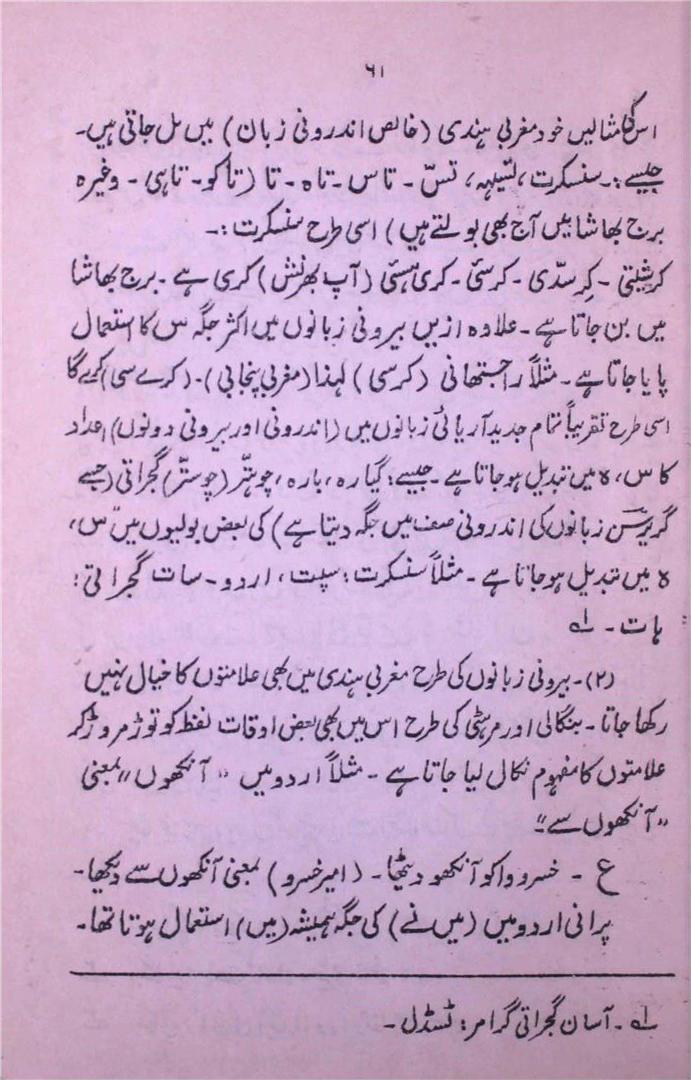 ۶۱
اس کی مثالیں خود مغربی ہندی (خالص اندرونی زبان) میں مل جاتی ہیں۔
جیسے:۔ سنسکرت، تسیہہ، تسّ ۔ تاس ۔ تاہ ۔ تا (تاکو ۔ تاہی ۔ وغیرہ
برج بھاشا میں آج بھی بولتے ہیں) اسی طرح سنسکرت:۔
کرشیتی ۔ کِرسدّی ۔ کرسئی ۔ کری ہسئی (آپ بھرنش) کری ہے ۔ برج بھاشا
میں بن جاتا ہے ۔ علاوہ ازیں بیرونی زبانوں میں اکثر جگہ س کا استعمال
پایا جاتا ہے ۔ مثلاً راجستھانی (کرسی) لہندا (مغربی پنجابی)۔ (کرے سی) کرے گا
اسی طرح تقریباً تمام جدید آریائی زبانوں میں (اندرونی اور بیرونی دونوں) اعداد
کا س، ہ میں تبدیل ہو جاتا ہے ۔ جیسے: گیارہ، بارہ، چوہتّر (چوستّر) گجراتی (جسے
گریرسن زبانوں کی اندرونی صف میں جگہ دیتا ہے) کی بعض بولیوں میں س،
ہ میں تبدیل ہو جاتا ہے ۔ مثلاً سنسکرت: سپت، اردو ۔ سات گجراتی:
ہات ۔ لہ
(۲)۔ بیرونی زبانوں کی طرح مغربی ہندی میں بھی علامتوں کا خیال نہیں
رکھا جاتا ۔ بنگالی اور مرہٹی کی طرح اس میں بھی بعض اوقات لفظ کو توڑ مروڑ کر
علامتوں کا مفہوم نکال لیا جاتا ہے ۔ مثلاً اردو میں "آنکھوں" بمعنی
"آنکھوں سے"
ع ۔ خسرو واکو آنکھو دیٹھا ۔ (امیر خسرو) بمعنی آنکھوں سے دیکھا ۔
پرانی اردو میں (میں نے) کی جگہ ہمیشہ (میں) استعمال ہوتا تھا ۔
لہ ۔ آسان گجراتی گرامر: ٹسڈل ۔